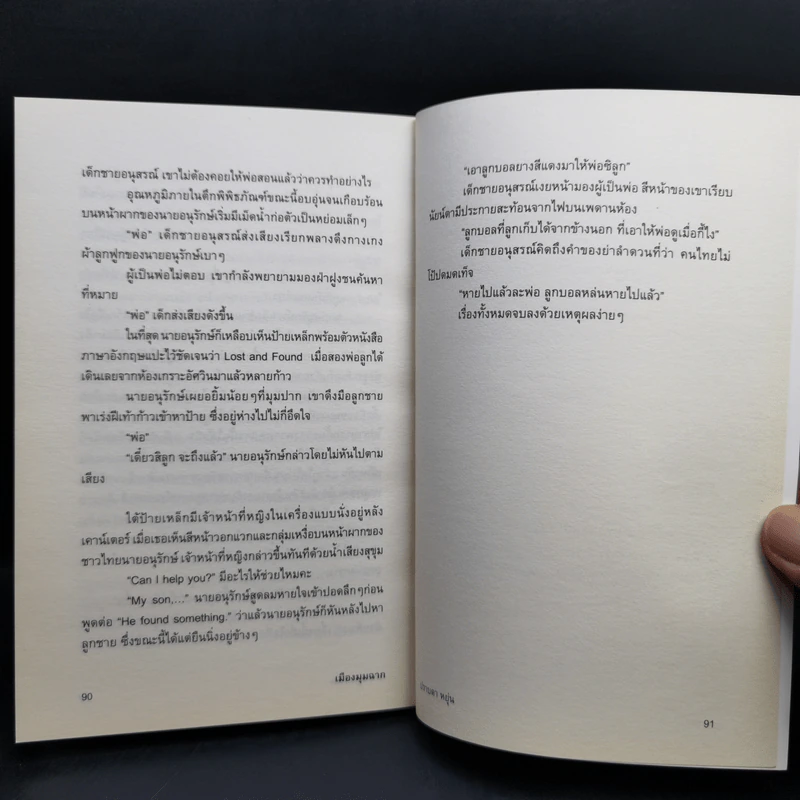 เด็กชายอนุสรณ์ เขาไม่ต้องคอยให้พ่อสอนแล้วว่าควรทำอย่างไร
อุณหภูมิภายในตึกพิพิธภัณฑ์ขณะนี้อบอุ่นจนเกือบร้อน
บนหน้าผากของนายอนุรักษ์เริ่มมีเม็ดน้ำก่อตัวเป็นหย่อมเล็กๆ
“พ่อ” เด็กชายอนุสรณ์ส่งเสียงเรียกพลางดึงกางเกง
ผ้าลูกฟูกของนายอนุรักษ์เบาๆ
ผู้เป็นพ่อไม่ตอบ เขากำลังพยายามมองฝ่าฝูงชนค้นหา
ที่หมาย
“พ่อ” เด็กส่งเสียงดังขึ้น
ในที่สุด นายอนุรักษ์ก็เหลือบเห็นป้ายเหล็กพร้อมตัวหนังสือ
ภาษาอังกฤษแปะไว้ชัดเจนว่า Lost and Found เมื่อสองพ่อลูกได้
เดินเลยจากห้องเกราะอัศวินมาแล้วหลายก้าว
นายอนุรักษ์เผยอยิ้มน้อยๆที่มุมปาก เขาดึงมือลูกชาย
พาเร่งฝีเท้าก้าวเข้าหาป้าย ซึ่งอยู่ห่างไปไม่กี่อึดใจ
“พ่อ”
“เดี๋ยวสิลูก จะถึงแล้ว” นายอนุรักษ์กล่าวโดยไม่หันไปตาม
เสียง
ใต้ป้ายเหล็กมีเจ้าหน้าที่หญิงในเครื่องแบบนั่งอยู่หลัง
เคาน์เตอร์ เมื่อเธอเห็นสีหน้าวอกแวกและกลุ่มเหงื่อบนหน้าผากของ
ชาวไทยนายอนุรักษ์ เจ้าหน้าที่หญิงกล่าวขึ้นทันทีด้วยน้ำเสียงสุขุม
“Can I help you?” มีอะไรให้ช่วยไหมคะ
“My son,...” นายอนุรักษ์สูดลมหายใจเข้าปอดลึกๆก่อน
พูดต่อ “He found something.” ว่าแล้วนายอนุรักษ์ก็หันหลังไปหา
ลูกชาย ซึ่งขณะนี้ได้แต่ยืนนิ่งอยู่ข้างๆ
เมืองมุมฉาก
90
“เอาลูกบอลยางสีแดงมาให้พ่อซิลูก”
เด็กชายอนุสรณ์เงยหน้ามองผู้เป็นพ่อ สีหน้าของเขาเรียบ
นัยน์ตามีประกายสะท้อนจากไฟบนเพดานห้อง
“ลูกบอลที่ลูกเก็บได้จากข้างนอก ที่เอาให้พ่อดูเมื่อกี้ไง”
เด็กชายอนุสรณ์คิดถึงคำของย่าลำดวนที่ว่า คนไทยไม่
โป้ปดมดเท็จ
“หายไปแล้วละพ่อ ลูกบอลหล่นหายไปแล้ว”
เรื่องทั้งหมดจบลงด้วยเหตุผลง่ายๆ
หยุ่น
91